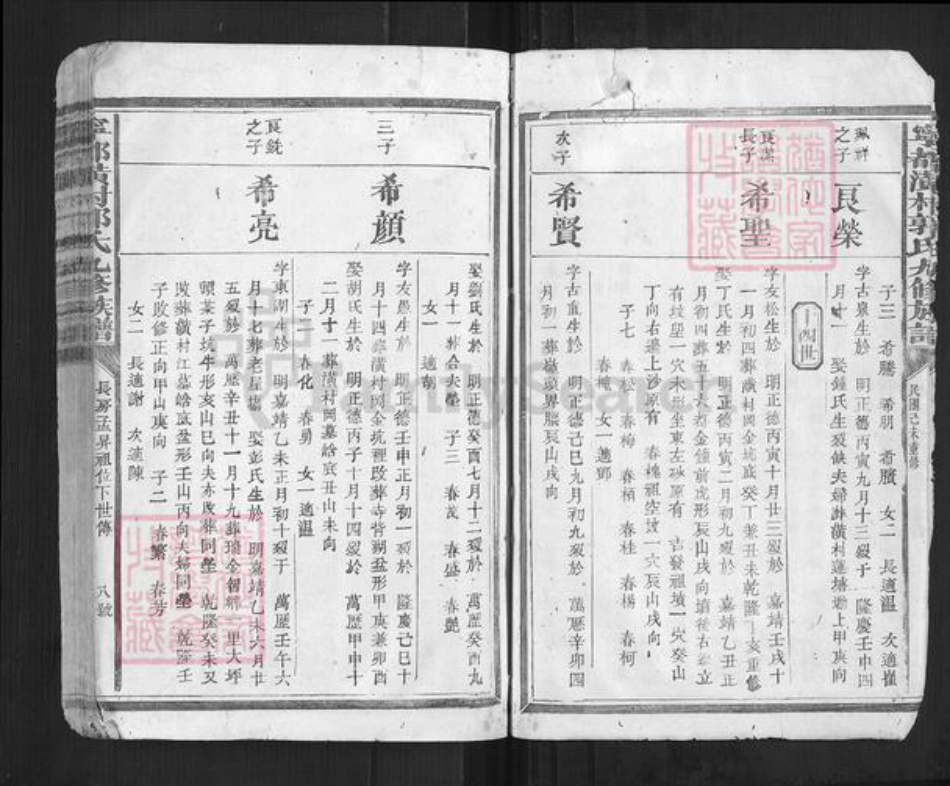 寧都潢村郭氏九修族譜
民國己未重修
珮祥
之子
良榮
子三 希騰 希朋 希賡 女二 長適溫 次適崔
字古泉生於 明正德丙寅九月十三歿于 隆慶壬申四
月十一 娶鍾氏生歿缺夫婦葬潢村蓮塘塍上甲庚向
十四世
長子
希聖
字友松生於 明正德丙寅十月廿三歿於 嘉靖壬戌十
一月初四葬潢村岡金坑底癸丁兼丑未乾隆丁亥重修
娶丁氏生於 明正德丙寅二月初九歿於 嘉靖乙丑正
月初四
丁向右邊上沙原有 春槐祖空墳一穴辰山戌向
子七 春松 春梅 春栢 春桂 春楊 春柯
春槐 女一適鄧
次子
希賢
字古重生於 明正德己巳九月初九歿於 萬曆辛卯四
月初一葬
辰山戌向
娶劉氏生於 明正德癸酉七月十二歿於 萬曆癸酉九
月十一葬合夫塋 子三 春茂 春盛 春艷
女一 適胡
三子
希顏
字友愚生於 明正德壬申正月初一歿於 隆慶己巳十
月十四葬潢村岡金坑裡改葬寺背湖盆形甲庚兼卯酉
娶胡氏生於 明正德丙子十月十四歿於 萬曆甲申十
二月十一葬潢村岡墓誥底丑山未向
子二 春化 春勇 女一適溫
良銑
之子
希亮
字東湖生於 明嘉靖乙未正月初十歿于 萬曆壬午六
月十七葬老屋場 娶彭氏生於 明嘉靖乙未六月廿
五歿於 萬曆辛丑十一月十九葬瑞金智鄉 里大坪
墳某子坑牛形亥山巳向夫亦改葬同塋 乾隆癸未又
改葬潢村江墓峆底盆形壬山丙向夫婦同塋 乾隆壬
子改修正向甲山庚向 子二 春繁 春芳
女二 長適謝 次適陳
寧都潢村郭氏九修族譜
長房孟昇祖位下世傳
八號
FamilySearch